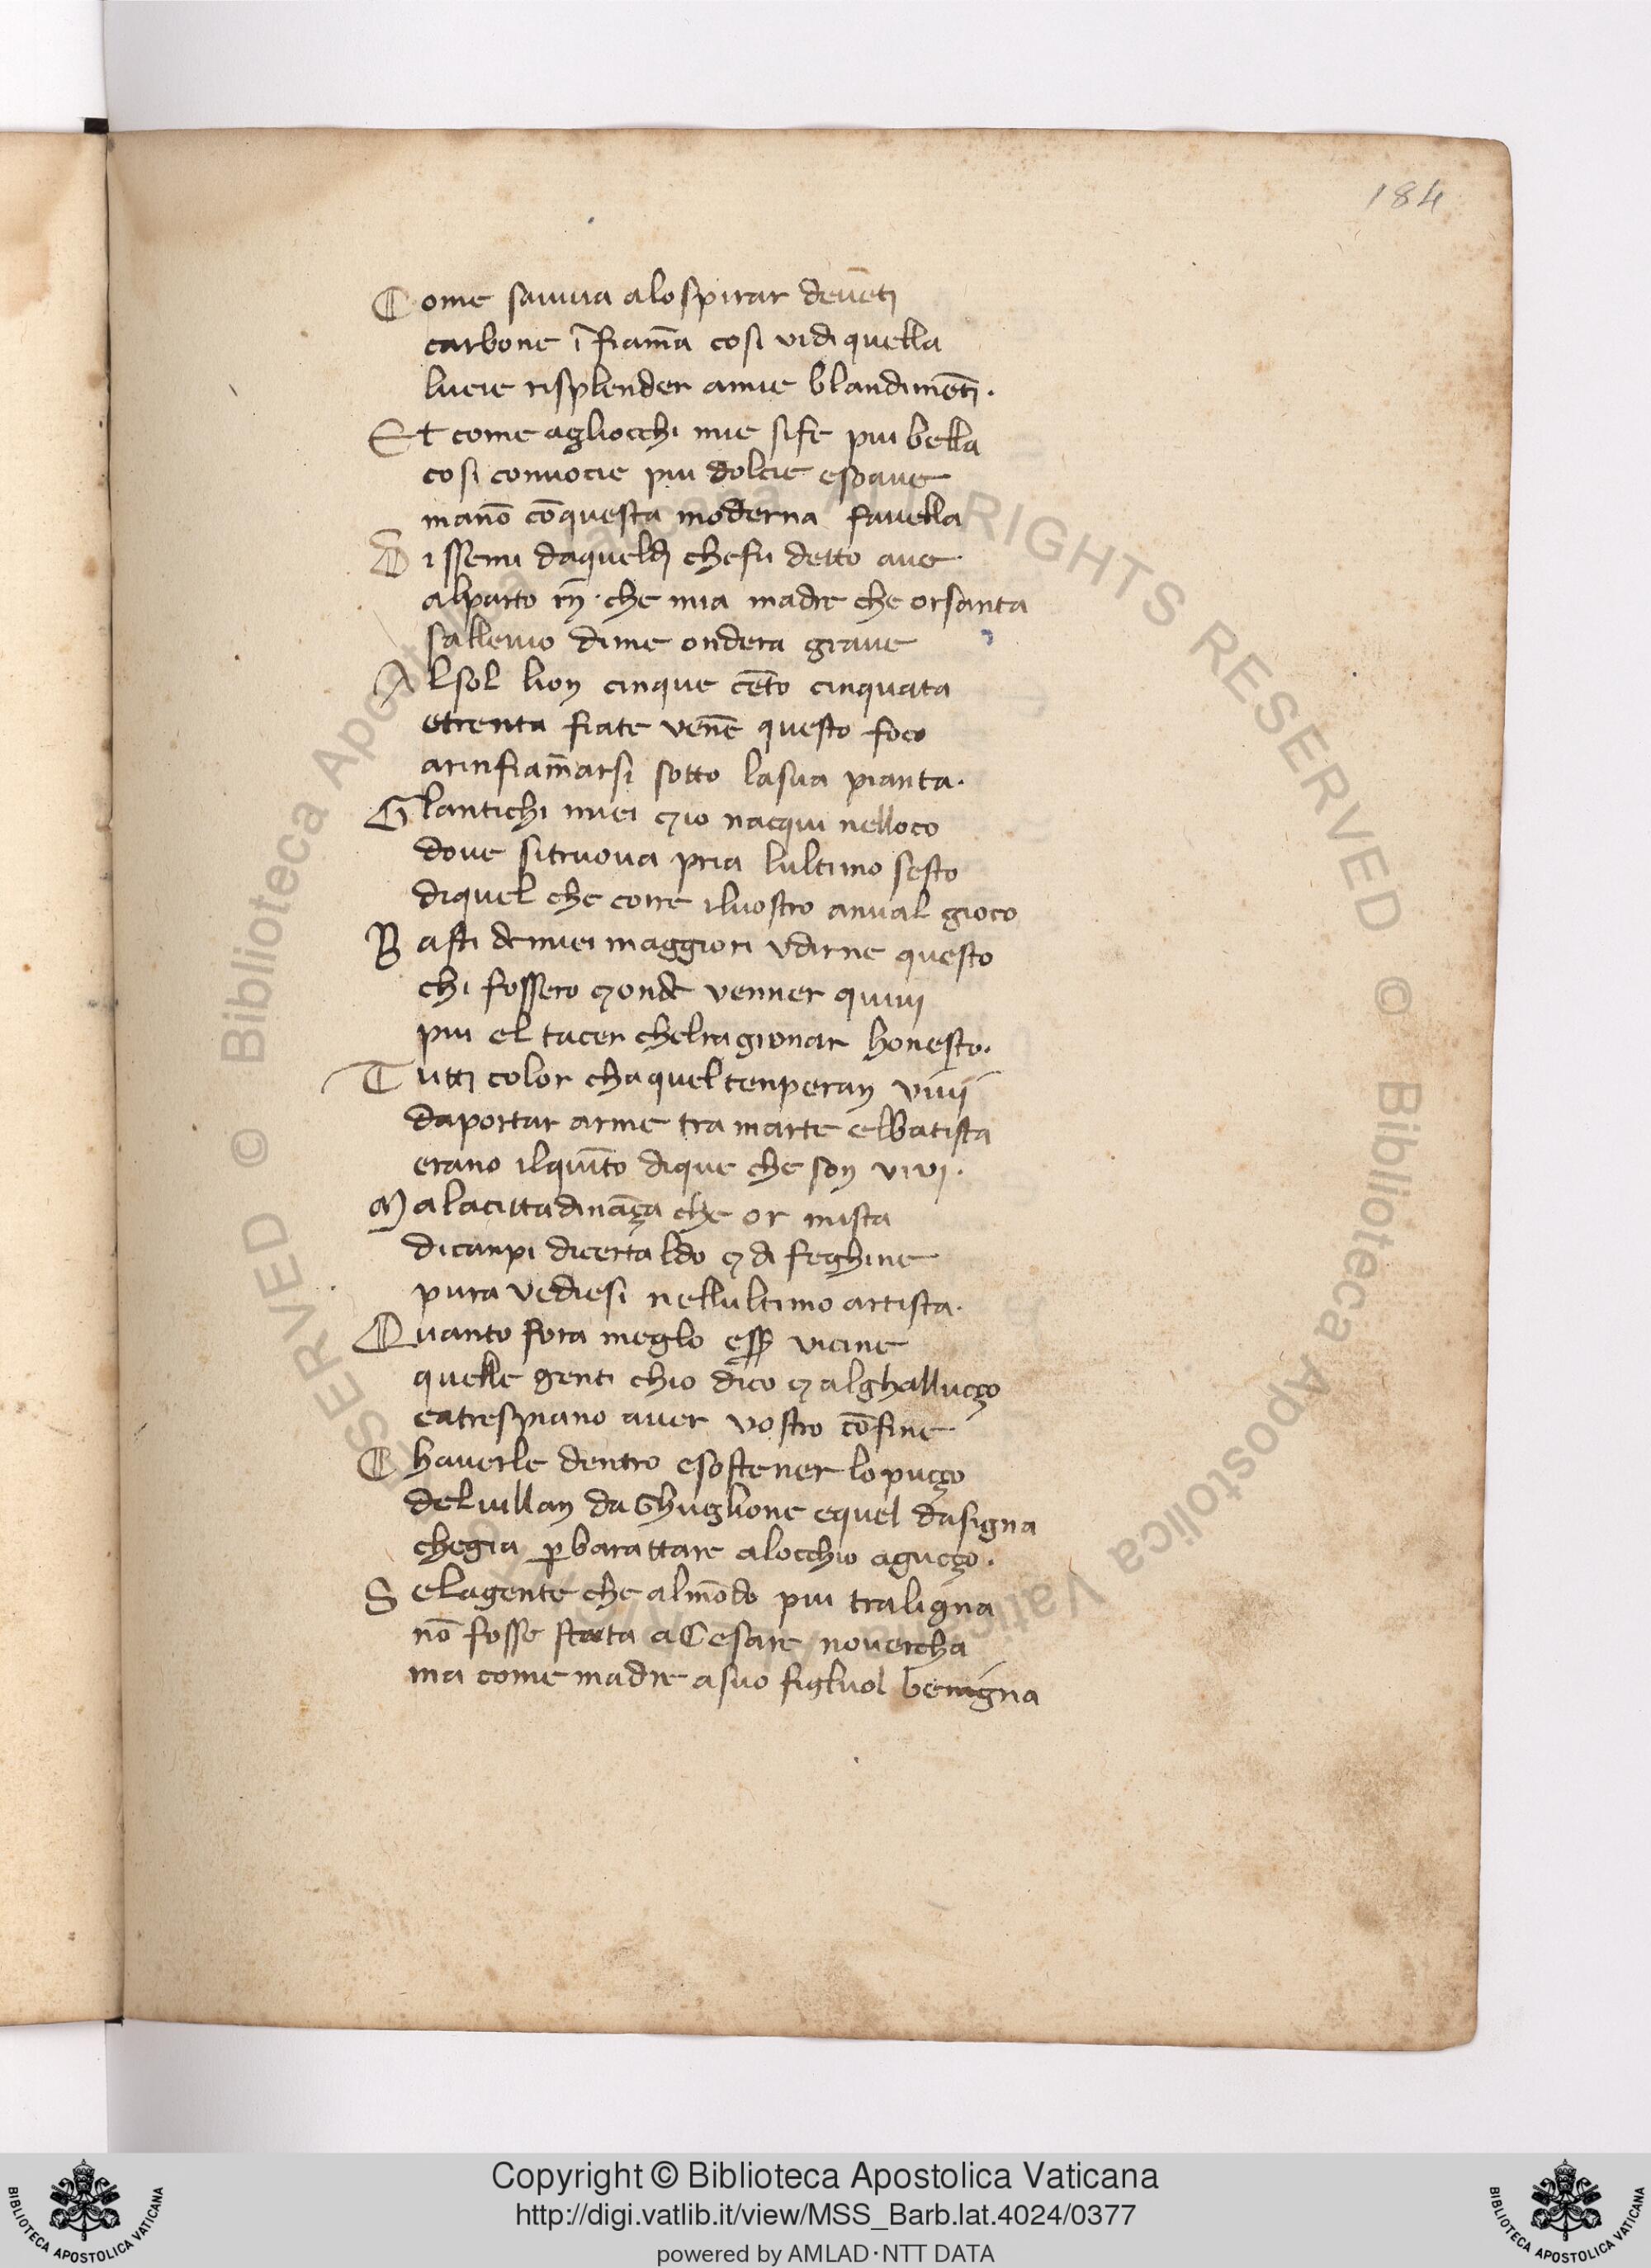 184
Come sauuia alospirar deuēti
carbone ī fiam̄a cosi vidi quella
lucie risplender amie blandimēti.
Et come agliocchi mie sife piu bella
cosi conuocie piu dolcie esoaue
manō cōquesta moderna fauella
Dissemi daqueldj chefu detto aue
alparto īn che mia madre che orsanta
salleuio dime ondera graue
Alsol lion cinque cēto cinquāta
etrenta fiate venē questo foco
arinfiam̄arsi sotto lasua pianta.
Glantichi miei ⁊io nacqui nelloco
doue sitruoua pria lultimo sesto
diquel che corre iluostro anual gioco
Basti demiei maggiori vdirne questo
chi fossero ⁊onde venner quiui
piu el tacer chelragionar honesto.
Tutti color chaqueltenperan viui
daportar arme tra marte elbatista
erano ilquīto dique che son vivi.
Malacittadināça che or mista
dicanpi dicertaldo ⁊di feghine
pura vediesi nellultimo artista.
Quanto fora meglo eẜꝑ vicine
quelle genti chio dico ⁊alghalluçço
eatrespiano auer vostro cōfine
Chauerle dentro esostener lopuçço
deluillan da Ghuglione equel dasigna
chegia ꝑbarattare alocchio aguçço.
Selagente che almōdo piu traligna
nō fosse stata aCesare nouercha
ma come madre asuo figluol benigna
Copyright © Biblioteca Apostolica Vaticana
http://digi.vatlib.it/view/MSS_Barb.lat.4024/0377
powered by AMLAD·NTT DATA